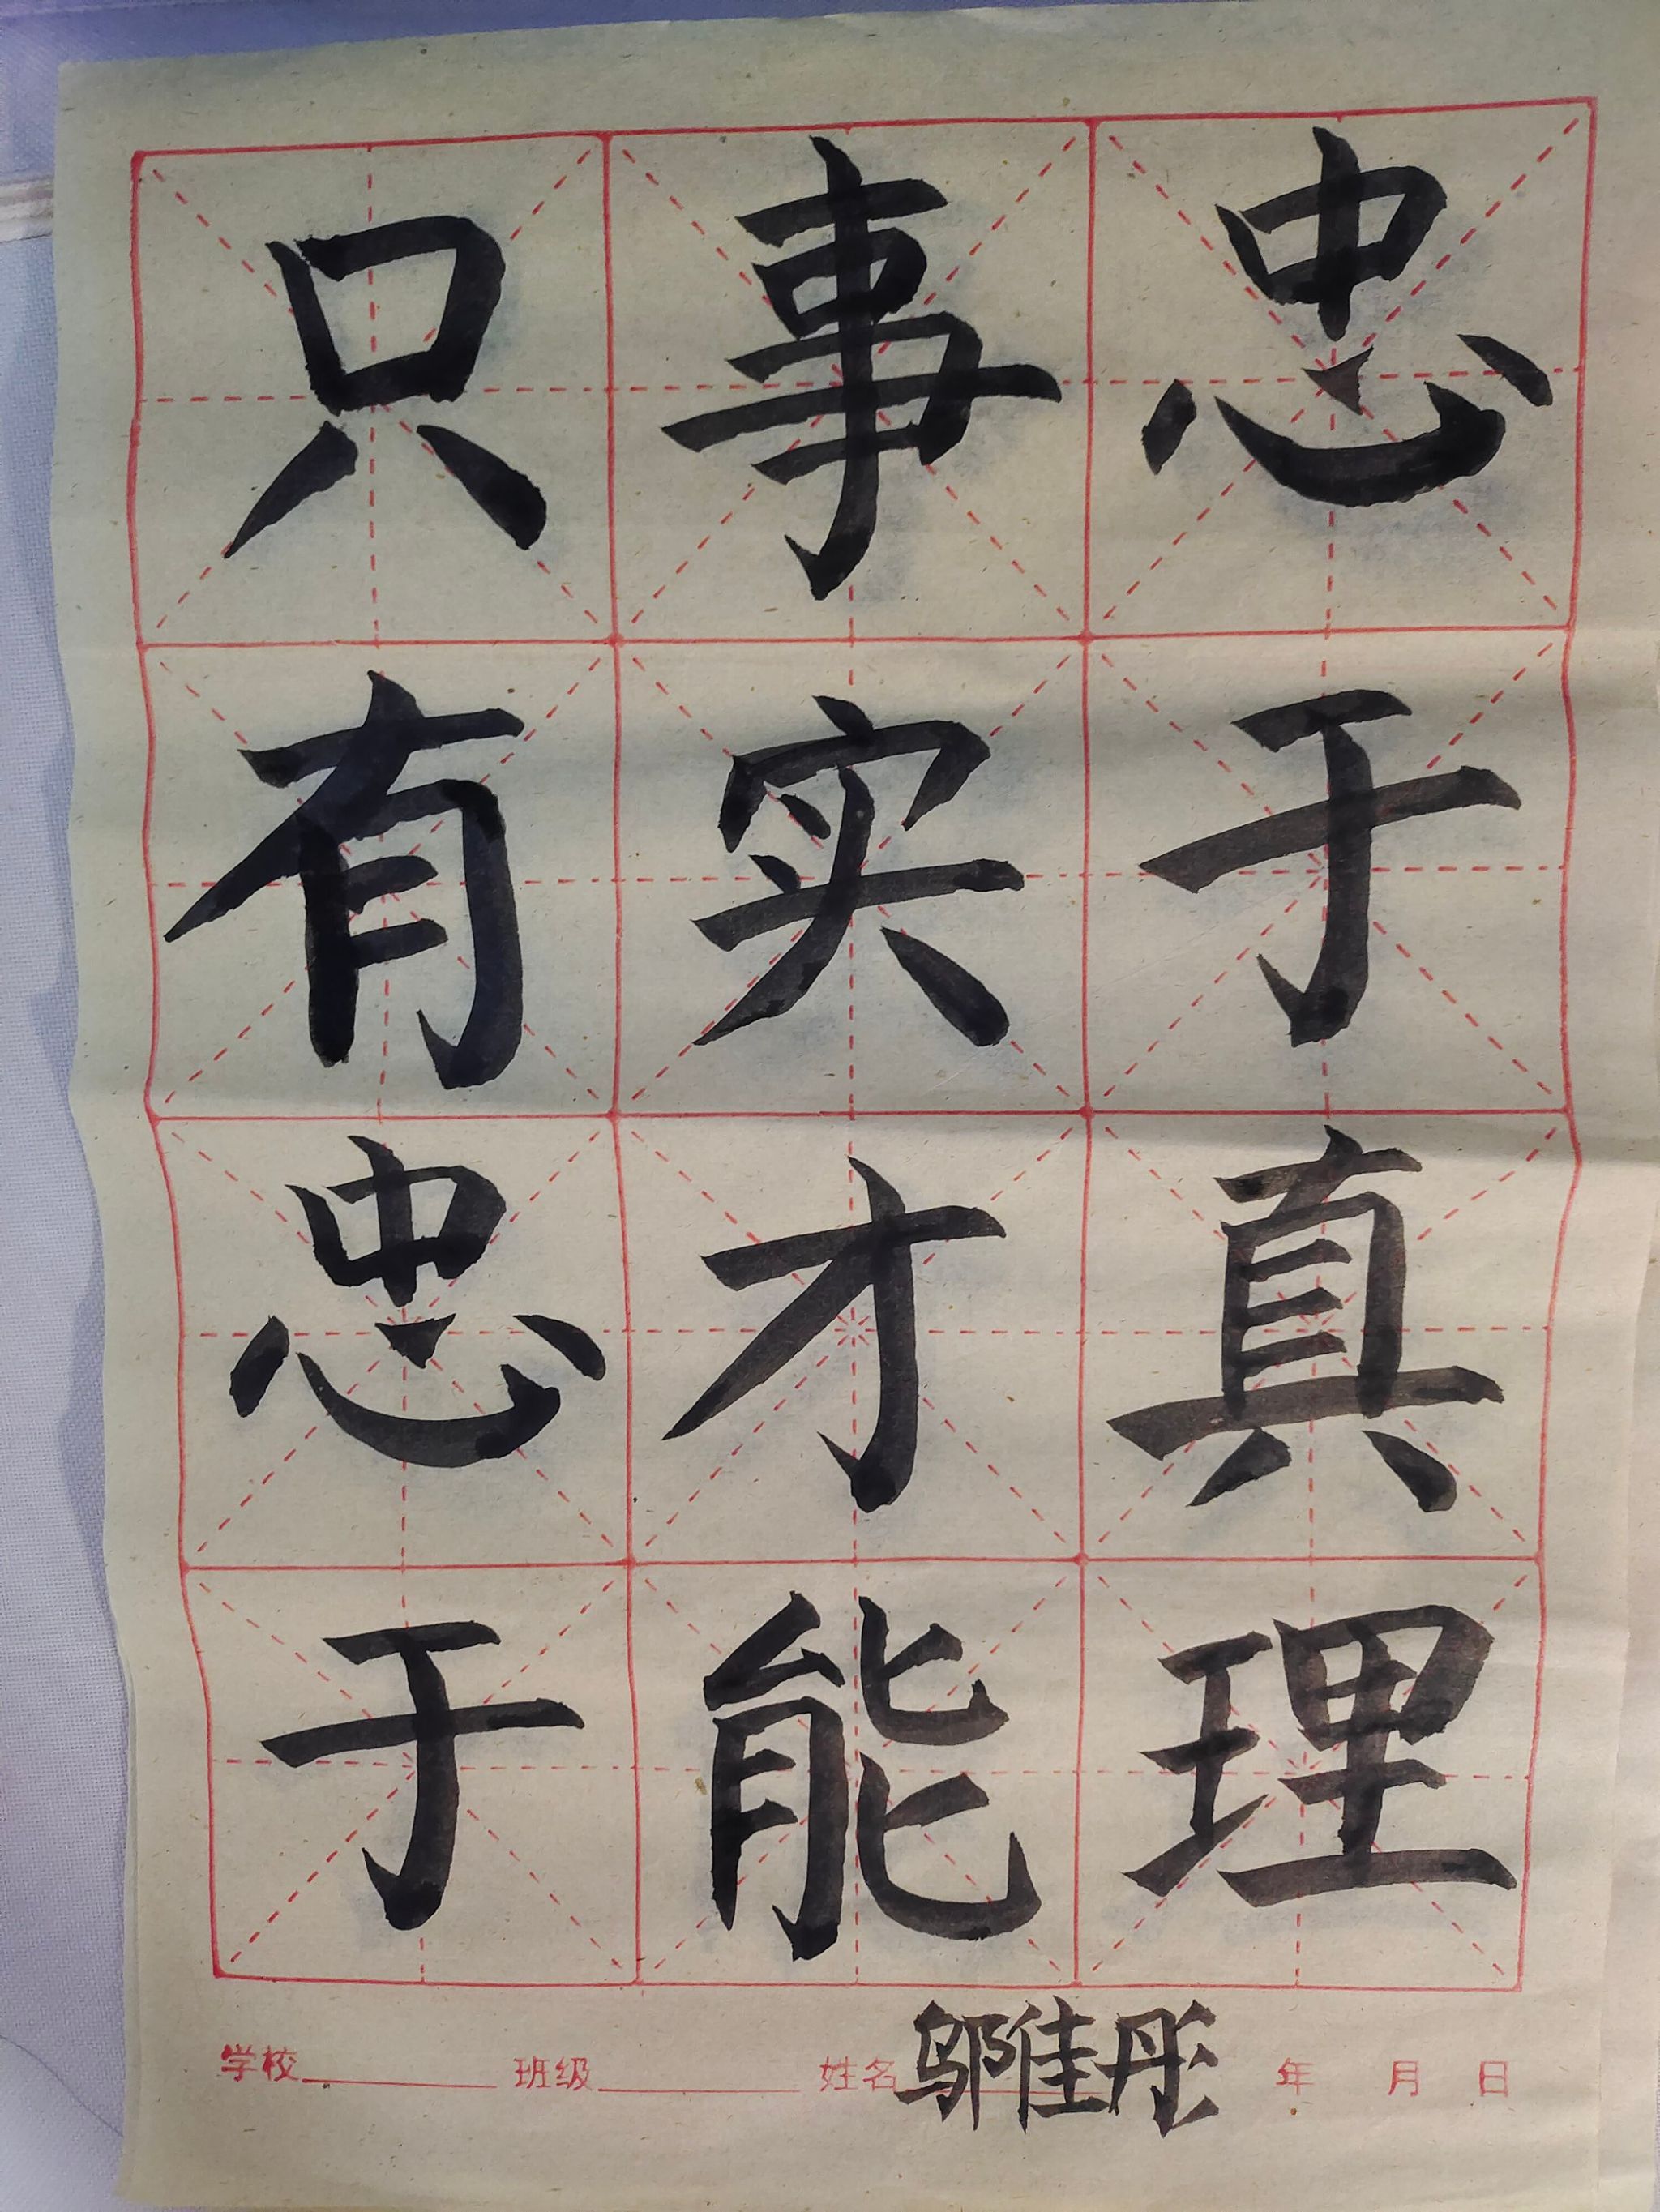 忠于真理
事实才能
只有忠于
学校 班级 姓名 邬佳彤 年 月 日